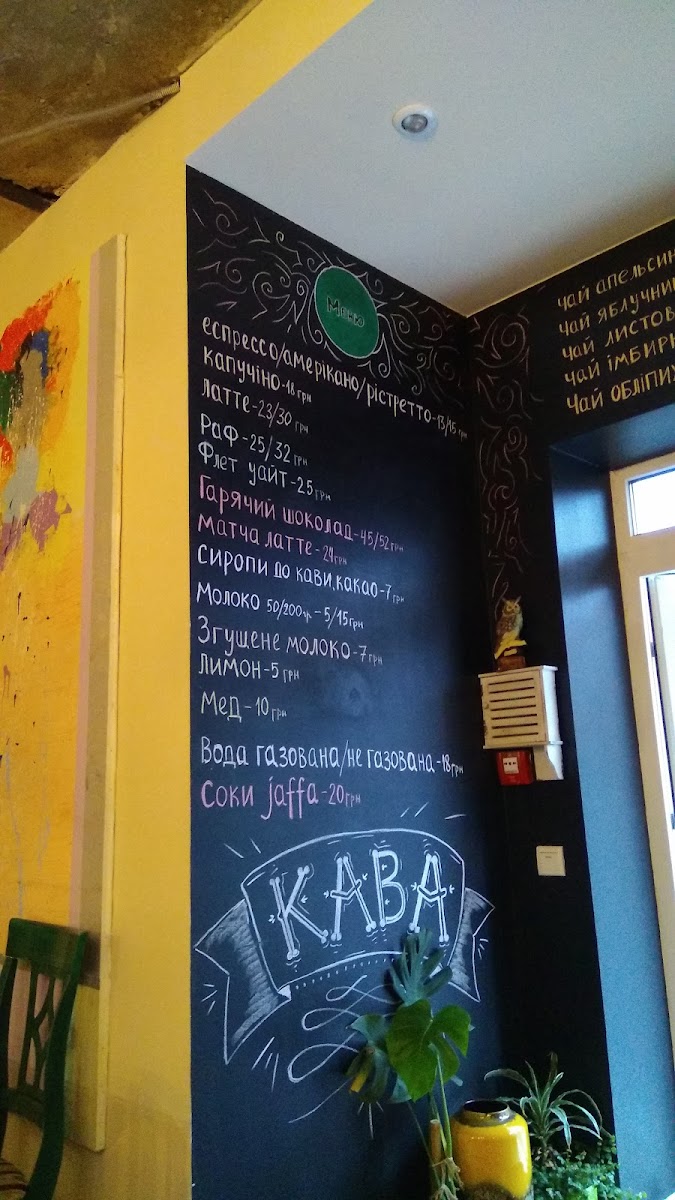 Меню
еспрессо/амерікано/рістретто-13/15 грн
капучіно-18 грн
латте-23/30 грн
Раф-25/32 грн
Флет уайт-25 грн
Гарячий шоколад-45/52 грн
матча латте-24 грн
сиропи до кави, какао-7 грн
молоко 50/200гр.-5/15 грн
Згущене молоко-7 грн
лимон-5 грн
Мед-10 грн
Вода газована/не газована-18 грн
Соки jaffa-20 грн
КАВА
чай апельсин
чай яблучни
чай листов
чай імбирн
чай обліпих